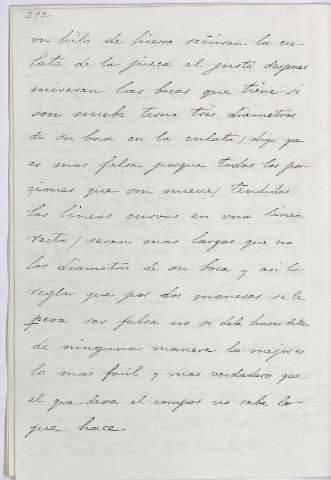 212
un hilo de hierro señiran la cu-
lata de la pieza al justo despues
miraran las bocas que tiene si
son nueve terna tres diametros
de su boca en la culata / digo que
es mas falsa porque todas las por-
ciones que son nueve / tendidas
las lineas curvas en una linea
recta / seran mas largas que no
los diametros de su boca y asi la
regla que por dos maneras se le
peva ser falsa no se debe
de ninguna manera lo mejor es
lo mas facil y mas verdadero que
el que dexa el compas no sabe lo
que hace